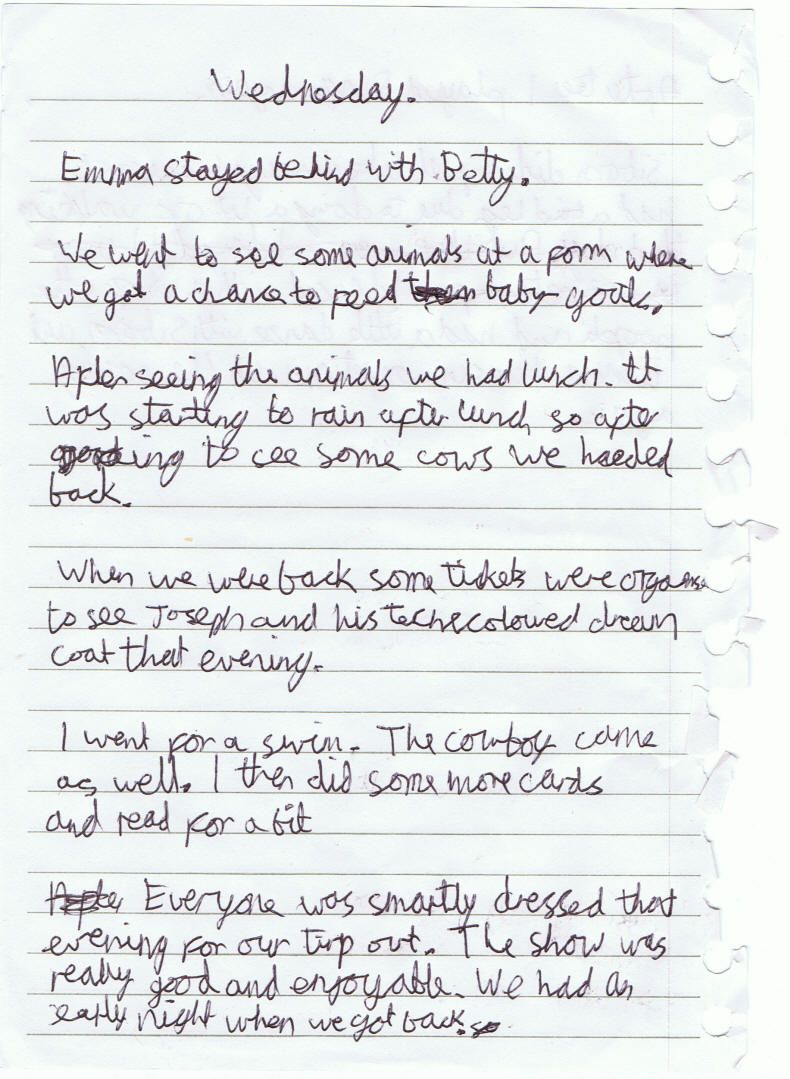 Wednesday.
Emma stayed behind with Betty.
We went to see some animals at a farm where
we got a chance to feed them baby goats.
After seeing the animals we had lunch. It
was starting to rain after lunch so after
going to see some cows we haeded
back.
When we were back some tickets were organise
to see Joseph and his technecoloured dream
coat that evening.
I went for a swim. The cowboy came
as well. I then did some more cards
and read for a bit
After Everyone was smartly dressed that
evening for our tirp out. The show was
really good and enjoyable. We had an
early night when we got back. so